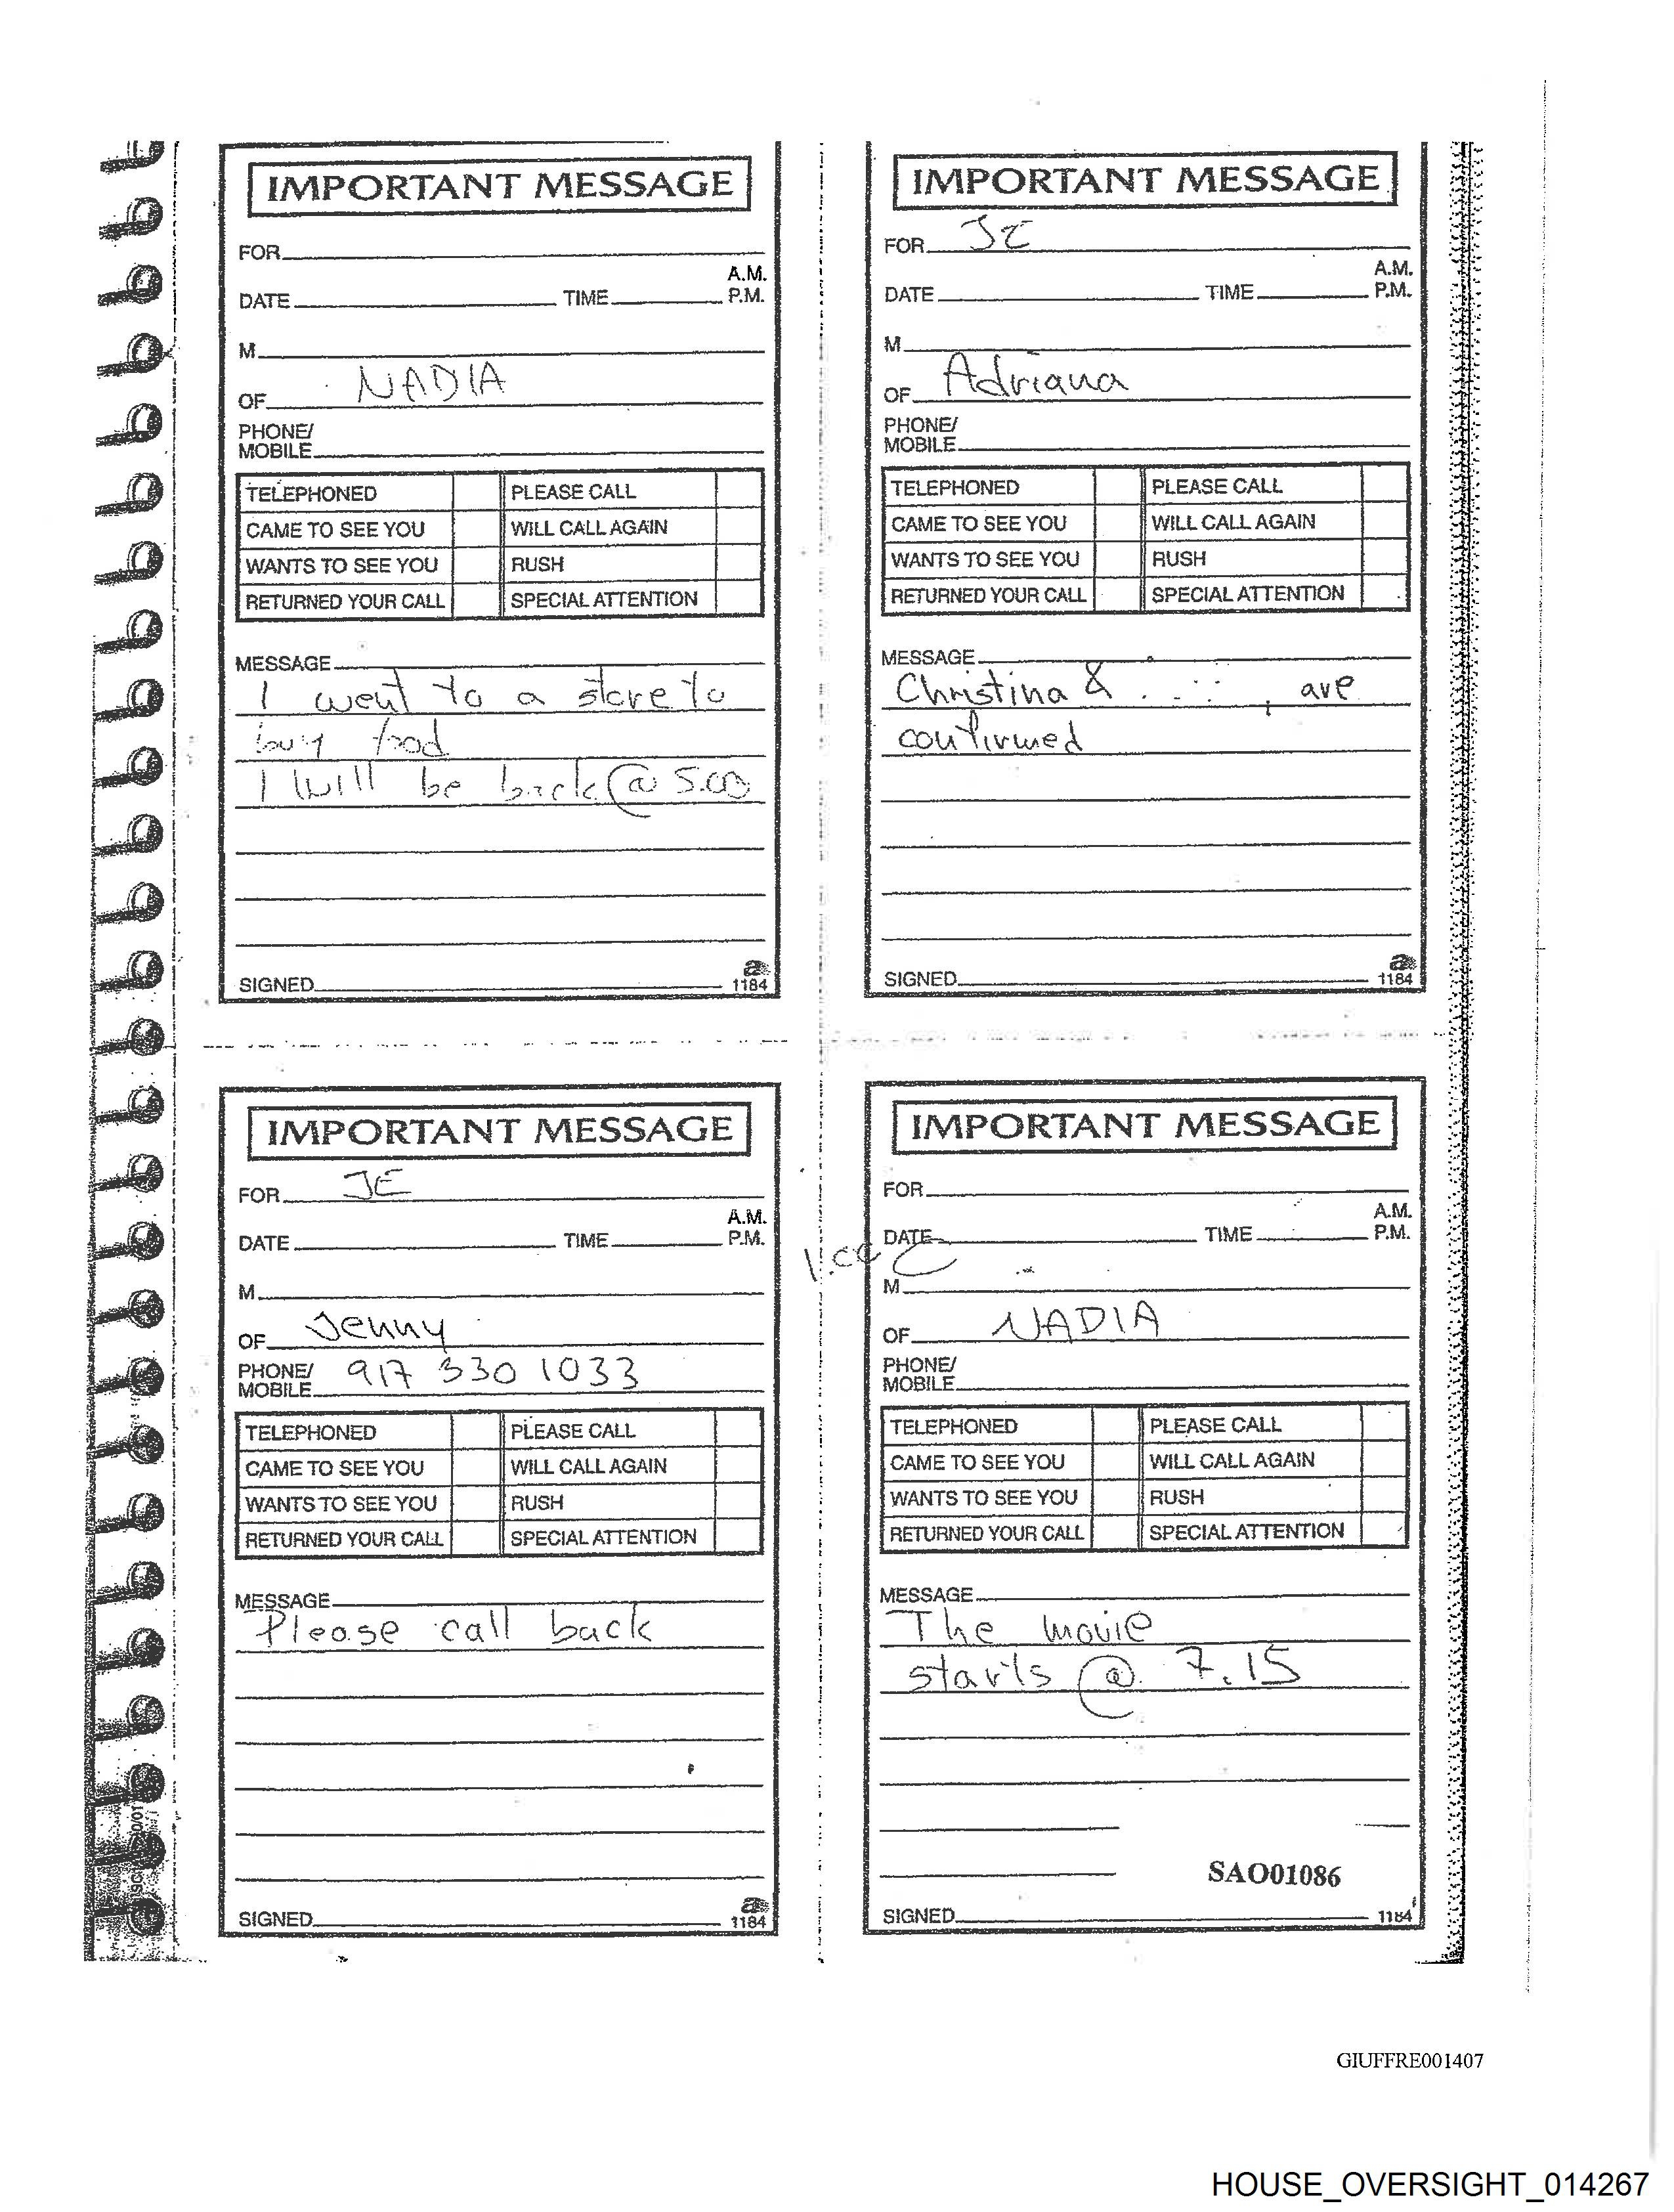 IMPORTANT MESSAGE
FOR
A.M.
DATE TIME P.M.
M
OF NADIA
PHONE/
MOBILE
TELEPHONED PLEASE CALL
CAME TO SEE YOU WILL CALL AGAIN
WANTS TO SEE YOU RUSH
RETURNED YOUR CALL SPECIAL ATTENTION
MESSAGE
I went to a store to
buy food
I will be back @ 5.00
SIGNED
1184
IMPORTANT MESSAGE
FOR JE
A.M.
DATE TIME P.M.
M
OF Adriana
PHONE/
MOBILE
TELEPHONED PLEASE CALL
CAME TO SEE YOU WILL CALL AGAIN
WANTS TO SEE YOU RUSH
RETURNED YOUR CALL SPECIAL ATTENTION
MESSAGE
Christina & are
confirmed
SIGNED
1184
IMPORTANT MESSAGE
FOR JE
A.M.
DATE TIME P.M.
M
OF Jenny
PHONE/ 917 330 1033
MOBILE
TELEPHONED PLEASE CALL
CAME TO SEE YOU WILL CALL AGAIN
WANTS TO SEE YOU RUSH
RETURNED YOUR CALL SPECIAL ATTENTION
MESSAGE
Please call back
SIGNED
1184
IMPORTANT MESSAGE
FOR
A.M.
DATE TIME P.M.
M
OF NADIA
PHONE/
MOBILE
TELEPHONED PLEASE CALL
CAME TO SEE YOU WILL CALL AGAIN
WANTS TO SEE YOU RUSH
RETURNED YOUR CALL SPECIAL ATTENTION
MESSAGE
The movie
starts @ 7.15
SAO01086
SIGNED
1184
GIUFFRE001407
HOUSE_OVERSIGHT_014267